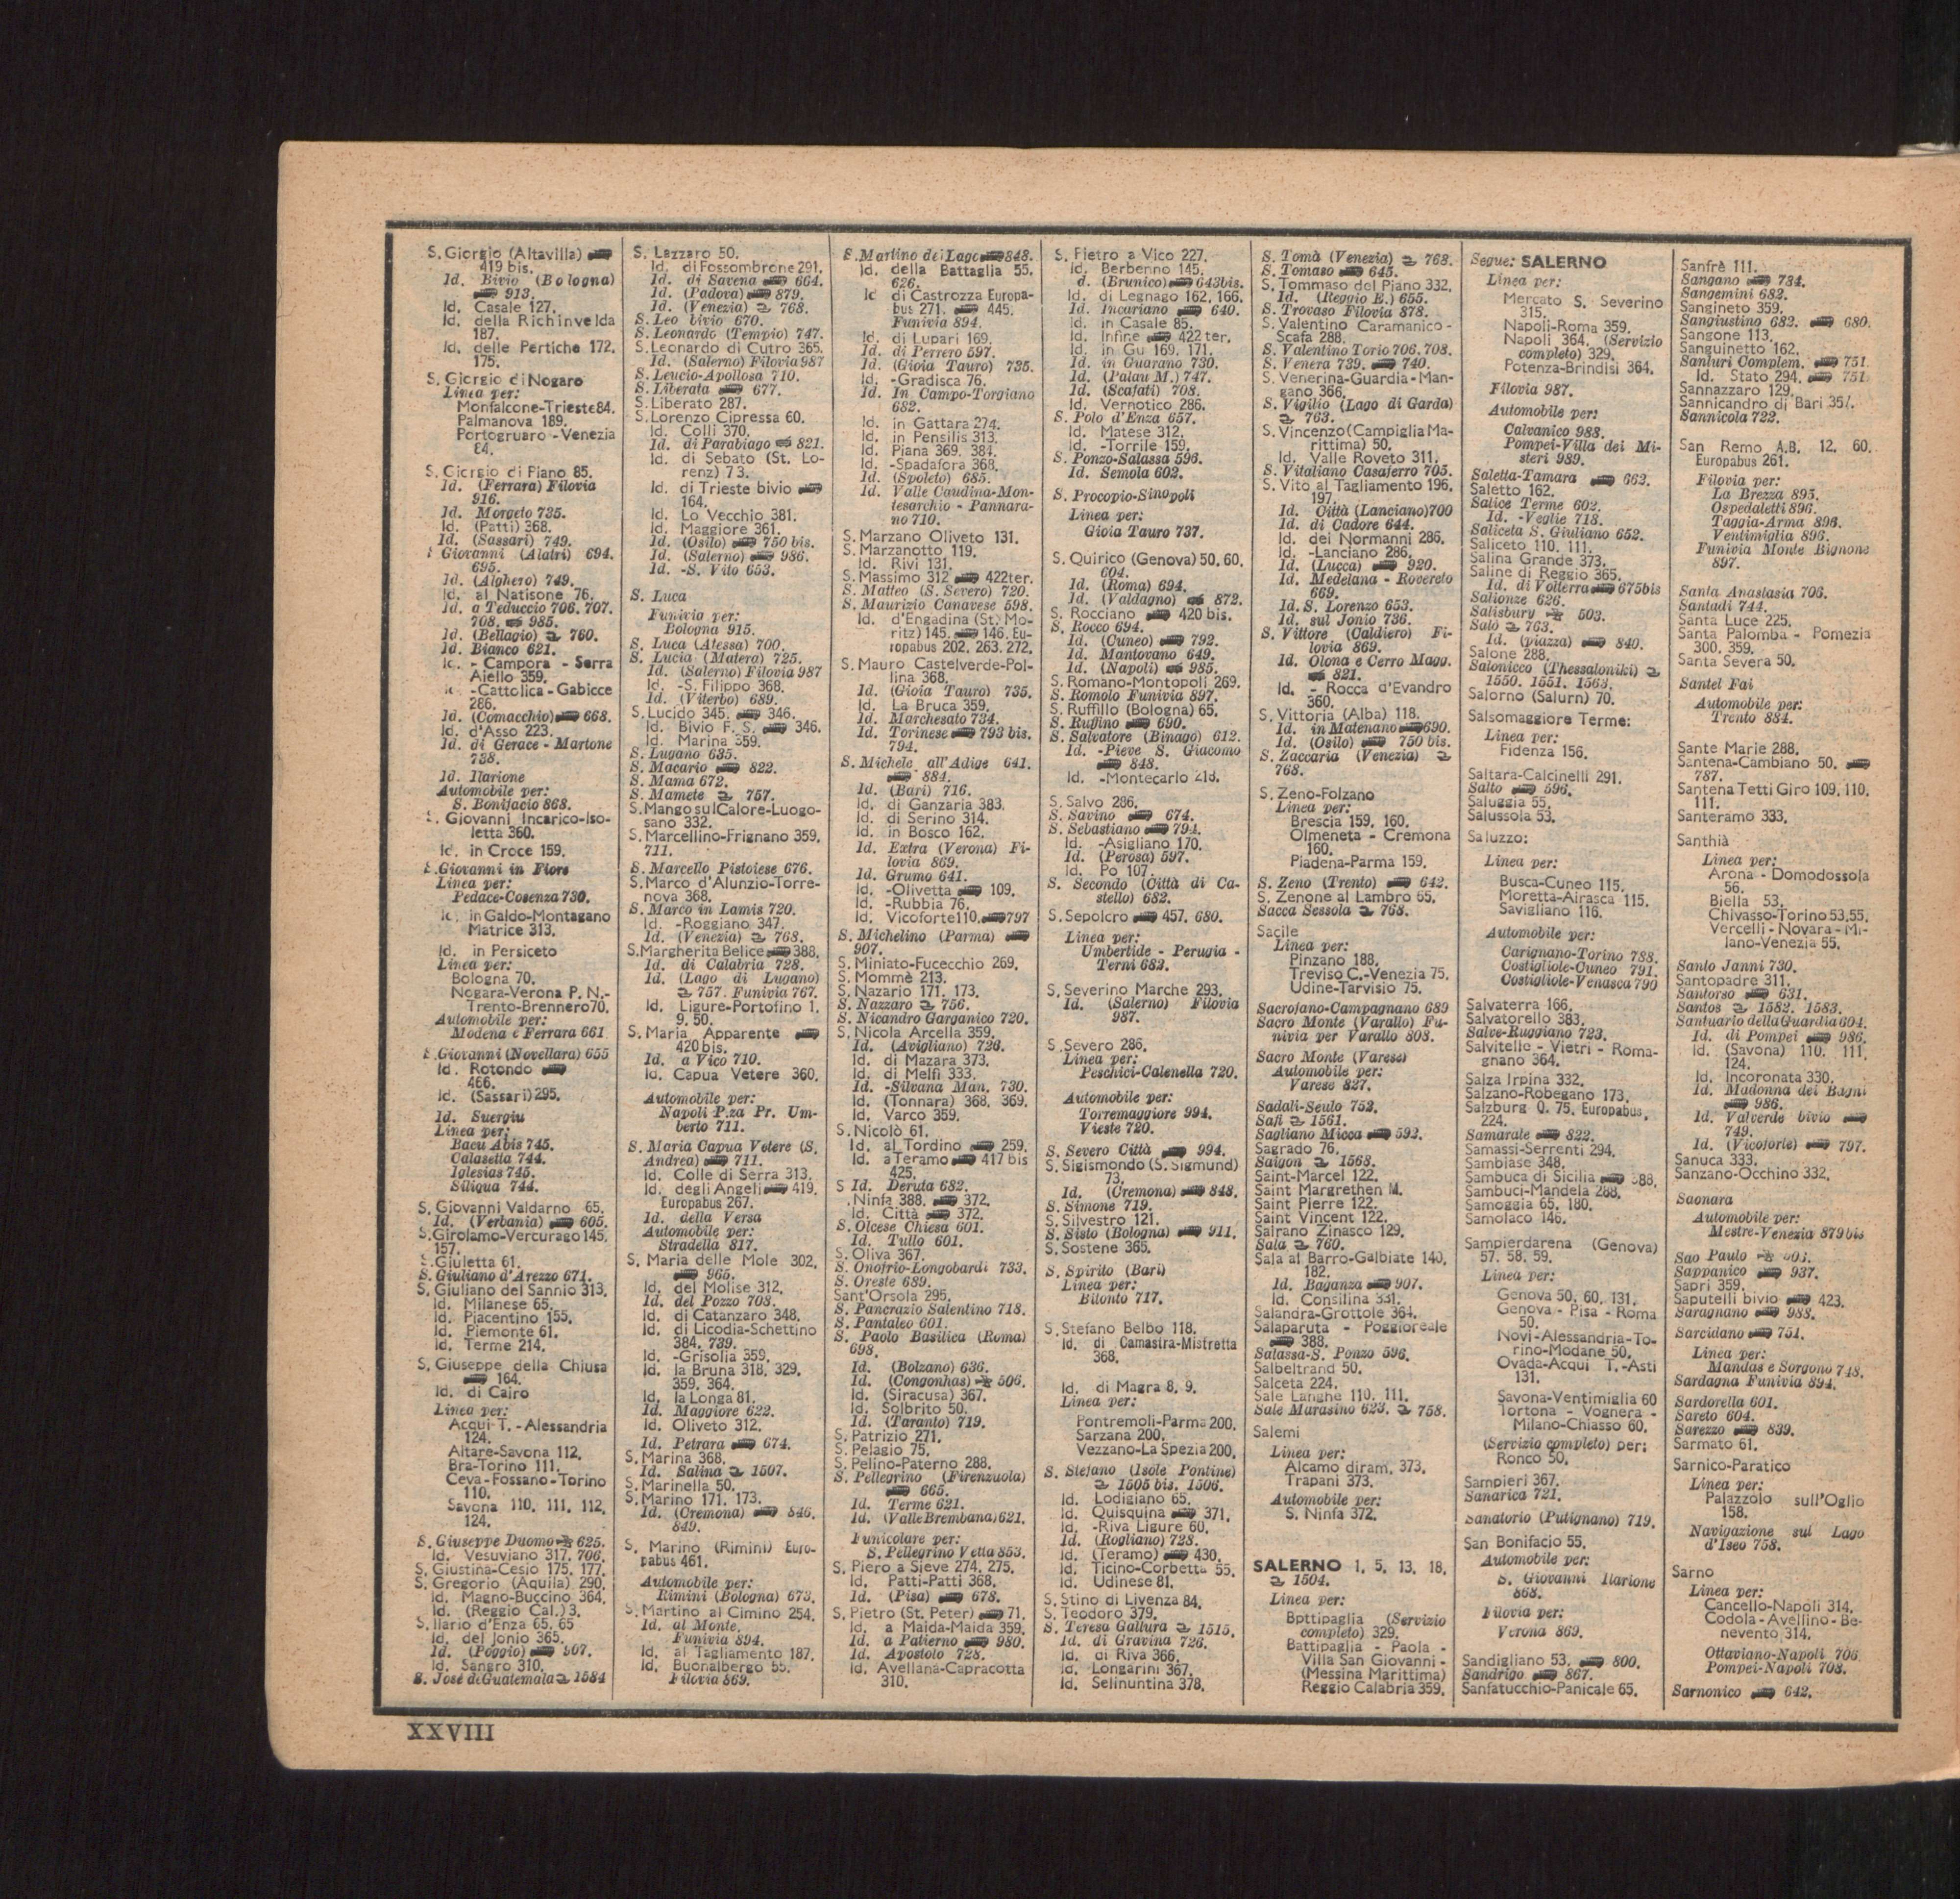 S. Giorgio (Altavilla)
419 bis.
Id. Bivio (Bologna)
913.
Id. Casale 127.
Id. della Richinvelda
187.
Id. delle Pertiche 172,
175.
S. Giorgio di Nogaro
Linea per:
Monfalcone-Trieste 84.
Palmanova 189.
Portogruaro - Venezia
84.
S. Giorgio di Piano 85.
Id. (Ferrara) Filovia
916.
Id. Morgeto 735.
Id. (Patti) 368.
Id. (Sassari) 749.
S Giovanni (Alatri) 694.
695.
Id. (Alghero) 749.
Id. al Natisone 76.
Id. a Teduccio 706, 707.
708. 985.
Id. (Bellagio) 760.
Id. Bianco 621.
Id. - Campora - Serra
Aiello 359.
Id. -Cattolica - Gabicce
286.
Id. (Comacchio) 668.
Id. d'Asso 223.
Id. di Gerace - Martone
738.
Id. Ilarione
Automobile per:
S. Bonifacio 868.
S. Giovanni Incarico-Iso-
letta 360.
Id. in Croce 159.
S. Giovanni in Fiore
Linea per:
Pedace-Cosenza 730.
Id. in Galdo-Montagano
Matrice 313.
Id. in Persiceto
Linea per:
Bologna 70.
Nogara-Verona P. N.-
Trento-Brennero 70.
Automobile per:
Modena e Ferrara 661
S. Giovanni (Novellara) 655
Id. Rotondo
466.
Id. (Sassari) 295.
Id. Suergiu
Linea per:
Bacu Abis 745.
Calasetta 744.
Iglesias 745.
Siliqua 744.
S. Giovanni Valdarno 65.
Id. (Verbania) 605.
S. Girolamo-Vercurago 145,
157.
S. Giuletta 61.
S. Giuliano d'Arezzo 671.
S. Giuliano del Sannio 313.
Id. Milanese 65.
Id. Piacentino 155.
Id. Piemonte 61.
Id. Terme 214.
S. Giuseppe della Chiusa
164.
Id. di Cairo
Linea per:
Acqui T. - Alessandria
124.
Altare-Savona 112.
Bra-Torino 111.
Ceva - Fossano - Torino
110.
Savona 110, 111, 112,
124.
S. Giuseppe Duomo 625.
Id. Vesuviano 317, 706.
S. Giustina-Cesio 175, 177.
S. Gregorio (Aquila) 290.
Id. Magno-Buccino 364.
Id. (Reggio Cal.) 3.
S. Ilario d'Enza 65, 65
Id. del Jonio 365.
Id. (Poggio) 907.
Id. Sangro 310.
S. José de Guatemala 1584
S. Lazzaro 50.
Id. di Fossombrone 291.
Id. di Savena 664.
Id. (Padova) 879.
Id. (Venezia) 768.
S. Leo bivio 670.
S. Leonardo (Tempio) 747.
S. Leonardo di Cutro 365.
Id. (Salerno) Filovia 987
S. Leucio-Apollosa 710.
S. Liberata 677.
S. Liberato 287.
S. Lorenzo Cipressa 60.
Id. Colli 370.
Id. di Parabiago 821.
Id. di Sebato (St. Lo-
renz) 73.
Id. di Trieste bivio
164.
Id. Lo Vecchio 381.
Id. Maggiore 361.
Id. (Osilo) 750 bis.
Id. (Salerno) 986.
Id. -S. Vito 653.
S. Luca
Funivia per:
Bologna 915.
S. Luca (Alessa) 700.
S. Lucia (Matera) 725.
Id. (Salerno) Filovia 987
Id. -S. Filippo 368.
Id. (Viterbo) 689.
S. Lucido 345. 346.
Id. Bivio F. S. 346.
Id. Marina 359.
S. Lugano 635.
S. Macario 822.
S. Mama 672.
S. Mamete 757.
S. Mango sul Calore-Luogo-
sano 332.
S. Marcellino-Frignano 359,
711.
S. Marcello Pistoiese 676.
S. Marco d'Alunzio-Torre-
nova 368.
S. Marco in Lamis 720.
Id. -Roggiano 347.
Id. (Venezia) 768.
S. Margherita Belice 388.
Id. di Calabria 728.
Id. (Lago di Lugano)
757. Funivia 767.
Id. Ligure-Portofino 1,
9, 50.
S. Maria Apparente
420 bis.
Id. a Vico 710.
Id. Capua Vetere 360.
Automobile per:
Napoli P.za Pr. Um-
berto 711.
S. Maria Capua Vetere (S.
Andrea) 711.
Id. Colle di Serra 313.
Id. degli Angeli 419.
Europabus 267.
Id. della Versa
Automobile per:
Stradella 817.
S. Maria delle Mole 302.
965.
Id. del Molise 312.
Id. del Pozzo 708.
Id. di Catanzaro 348.
Id. di Licodia-Schettino
384, 739.
Id. -Grisolia 359.
Id. la Bruna 318, 329.
359, 364.
Id. la Longa 81.
Id. Maggiore 622.
Id. Oliveto 312.
Id. Petrara 674.
S. Marina 368.
Id. Salina 1507.
S. Marinella 50.
S. Marino 171, 173.
Id. (Cremona) 846.
849.
S. Marino (Rimini) Euro-
pabus 461.
Automobile per:
Rimini (Bologna) 673.
S. Martino al Cimino 254.
Id. al Monte.
Funivia 894.
Id. al Tagliamento 187.
Id. Buonalbergo 55.
Filovia 869.
S. Martino del Lago 848.
Id. della Battaglia 55.
626.
Id di Castrozza Europa-
bus 271. 445.
Funivia 894.
Id. di Lupari 169.
Id. di Perrero 597.
Id. (Gioia Tauro) 735.
Id. -Gradisca 76.
Id. In Campo-Torgiano
682.
Id. in Gattara 274.
Id. in Pensilis 313.
Id. Piana 369, 384.
Id. -Spadafora 368.
Id. (Spoleto) 685.
Id. Valle Caudina-Mon-
tesarchio - Pannara-
no 710.
S. Marzano Oliveto 131.
S. Marzanotto 119.
Id. Rivi 131.
S. Massimo 312 422ter.
S. Matteo (S. Severo) 720.
S. Maurizio Canavese 598.
Id. d'Engadina (St. Mo-
ritz) 145. 146. Eu-
ropabus 202, 263, 272.
S. Mauro Castelverde-Pol-
lina 368.
Id. (Gioia Tauro) 735.
Id. La Bruca 359.
Id. Marchesato 734.
Id. Torinese 793 bis.
794.
S. Michele all'Adige 641.
884.
Id. (Bari) 716.
Id. di Ganzaria 383.
Id. di Serino 314.
Id. in Bosco 162.
Id. Extra (Verona) Fi-
lovia 869.
Id. Grumo 641.
Id. -Olivetta 109.
Id. -Rubbia 76.
Id. Vicoforte 110. 797
S. Michelino (Parma)
907.
S. Miniato-Fucecchio 269.
S. Mommè 213.
S. Nazario 171, 173.
S. Nazzaro 756.
S. Nicandro Garganico 720.
S. Nicola Arcella 359.
Id. (Avigliano) 726.
Id. di Mazara 373.
Id. di Melfi 333.
Id. -Silvana Man. 730.
Id. (Tonnara) 368, 369.
Id. Varco 359.
S. Nicolò 61.
Id. al Tordino 259.
Id. a Teramo 417 bis
425.
S Id. Deruta 682.
. Ninfa 388. 372.
Id. Città 372.
S. Olcese Chiesa 601.
Id. Tullo 601.
S. Oliva 367.
S. Onofrio-Longobardi 733.
S. Oreste 689.
Sant'Orsola 295.
S. Pancrazio Salentino 718.
S. Pantaleo 601.
S. Paolo Basilica (Roma)
698.
Id. (Bolzano) 636.
Id. (Congonhas) 506.
Id. (Siracusa) 367.
Id. Solbrito 50.
Id. (Taranto) 719.
S. Patrizio 271.
S. Pelagio 75.
S. Pelino-Paterno 288.
S. Pellegrino (Firenzuola)
665.
Id. Terme 621.
Id. (Valle Brembana) 621.
Funicolare per:
S. Pellegrino Vetta 853.
S. Piero a Sieve 274, 275.
Id. Patti-Patti 368.
Id. (Pisa) 678.
S. Pietro (St. Peter) 71.
Id. a Maida-Maida 359.
Id. a Patierno 980.
Id. Apostolo 728.
Id. Avellana-Capracotta
310.
S. Pietro a Vico 227.
Id. Berbenno 145.
d. (Brunico) 643bis.
Id. di Legnago 162, 166.
Id. Incariano 640.
Id. in Casale 85.
Id. Infine 422 ter.
Id. in Gu 169, 171.
Id. in Guarano 730.
Id. (Palau M.) 747.
Id. (Scafati) 708.
Id. Vernotico 286.
S. Polo d'Enza 657.
Id. Matese 312.
Id. -Torrile 159.
S. Ponzo-Salassa 596.
Id. Semola 602.
S. Procopio-Sinopoli
Linea per:
Gioia Tauro 737.
S. Quirico (Genova) 50, 60.
604.
Id. (Roma) 694.
Id. (Valdagno) 872.
S. Rocciano 420 bis.
S. Rocco 694.
Id. (Cuneo) 792.
Id. Mantovano 649.
Id. (Napoli) 985.
S. Romano-Montopoli 269.
S. Romolo Funivia 897.
S. Ruffillo (Bologna) 65.
S. Ruffino 690.
S. Salvatore (Binago) 612.
Id. -Pieve S. Giacomo
848.
Id. -Montecarlo 213.
S. Salvo 286.
S. Savino 674.
S. Sebastiano 794.
Id. -Asigliano 170.
Id. (Perosa) 597.
Id. Po 107.
S. Secondo (Città di Ca-
stello) 682.
S. Sepolcro 457, 680.
Linea per:
Umbertide - Perugia -
Terni 682.
S. Severino Marche 293.
Id. (Salerno) Filovia
987.
S. Severo 286.
Linea per:
Peschici-Calenella 720.
Automobile per:
Torremaggiore 994.
Vieste 720.
S. Severo Città 994.
S. Sigismondo (S. Sigmund)
73.
Id. (Cremona) 848.
S. Simone 719.
S. Silvestro 121.
S. Sisto (Bologna) 911.
S. Sostene 365.
S. Spirito (Bari)
Linea per:
Bitonto 717.
S. Stefano Belbo 118.
Id. di Camastra-Mistretta
368.
Id. di Magra 8, 9.
Linea per:
Pontremoli-Parma 200.
Sarzana 200.
Vezzano-La Spezia 200.
S. Stefano (Isole Pontine)
1505 bis, 1506.
Id. Lodigiano 65.
Id. Quisquina 371.
Id. -Riva Ligure 60.
Id. (Rogliano) 728.
Id. (Teramo) 430.
Id. Ticino-Corbetta 55.
Id. Udinese 81.
S. Stino di Livenza 84.
S. Teodoro 379.
S. Teresa Gallura 1515.
Id. di Gravina 726.
Id. di Riva 366.
Id. Longarini 367.
Id. Selinuntina 378.
S. Tomà (Venezia) 768.
S. Tomaso 645.
S. Tommaso del Piano 332.
Id. (Reggio E.) 655.
S. Trovaso Filovia 878.
S. Valentino Caramanico -
Scafa 288.
S. Valentino Torio 706, 708.
S. Venera 739. 740.
S. Venerina-Guardia - Man-
gano 366.
S. Vigilio (Lago di Garda)
763.
S. Vincenzo (Campiglia Ma-
rittima) 50.
Id. Valle Roveto 311.
S. Vitaliano Casaferro 705.
S. Vito al Tagliamento 196,
197.
Id. Città (Lanciano) 700
Id. di Cadore 644.
Id. dei Normanni 286.
Id. -Lanciano 286.
Id. (Lucca) 920.
Id. Medelana - Rovereto
669.
Id. S. Lorenzo 653.
Id. sul Jonio 736.
S. Vittore (Caldiero) Fi-
lovia 869.
Id. Olona e Cerro Magg.
821.
Id. - Rocca d'Evandro
360.
S. Vittoria (Alba) 118.
Id. in Matenano 690.
Id. (Osilo) 750 bis.
S. Zaccaria (Venezia)
768.
S. Zeno-Folzano
Linea per:
Brescia 159, 160.
Olmeneta - Cremona
160.
Piadena-Parma 159.
S. Zeno (Trento) 642.
S. Zenone al Lambro 65.
Sacca Sessola 768.
Sacile
Linea per:
Pinzano 188.
Treviso C.-Venezia 75.
Udine-Tarvisio 75.
Sacrofano-Campagnano 689
Sacro Monte (Varallo) Fu-
nivia per Varallo 808.
Sacro Monte (Varese)
Automobile per:
Varese 827.
Sadali-Seulo 752.
Safi 1561.
Sagliano Micca 592.
Sagrado 76.
Saigon 1568.
Saint-Marcel 122.
Saint Margrethen M.
Saint Pierre 122.
Saint Vincent 122.
Sairano Zinasco 129.
Sala 760.
Sala al Barro-Galbiate 140,
182.
Id. Baganza 907.
Id. Consilina 331.
Salandra-Grottole 364.
Salaparuta - Poggioreale
388.
Salassa-S. Ponzo 596.
Salbeltrand 50.
Salceta 224.
Sale Langhe 110, 111.
Sale Marasino 623. 758.
Salemi
Linea per:
Alcamo diram. 373.
Trapani 373.
Automobile per:
S. Ninfa 372.
SALERNO 1, 5, 13, 18,
1504.
Linea per:
Battipaglia (Servizio
completo) 329.
Battipaglia - Paola -
Villa San Giovanni -
(Messina Marittima)
Reggio Calabria 359.
Segue: SALERNO
Linea per:
Mercato S. Severino
315.
Napoli-Roma 359.
Napoli 364. (Servizio
completo) 329.
Potenza-Brindisi 364.
Filovia 987.
Automobile per:
Calvanico 988.
Pompei-Villa dei Mi-
steri 989.
Saletta-Tamara 662.
Saletto 162.
Salice Terme 602.
Id. -Veglie 718.
Saliceta S. Giuliano 652.
Saliceto 110, 111.
Salina Grande 373.
Saline di Reggio 365.
Id. di Volterra 675bis
Salionze 626.
Salisbury 503.
Salò 763.
Id. (piazza) 840.
Salone 288.
Salonicco (Thessaloniki)
1550, 1551, 1563.
Salorno (Salurn) 70.
Salsomaggiore Terme:
Linea per:
Fidenza 156.
Saltara-Calcinelli 291.
Salto 596.
Saluggia 55.
Salussola 53.
Saluzzo:
Linea per:
Busca-Cuneo 115.
Moretta-Airasca 115.
Savigliano 116.
Automobile per:
Carignano-Torino 788.
Costigliole-Cuneo 791.
Costigliole-Venasca 790
Salvaterra 166.
Salvatorello 383.
Salve-Ruggiano 723.
Salvitelle - Vietri - Roma-
gnano 364.
Salza Irpina 332.
Salzano-Robegano 173.
Salzburg O. 75. Europabus.
224.
Samarate 822.
Samassi-Serrenti 294.
Sambiase 348.
Sambuca di Sicilia 388.
Sambuci-Mandela 288.
Samoggia 65, 180.
Samolaco 146.
Sampierdarena (Genova)
57, 58, 59.
Linea per:
Genova 50, 60, 131.
Genova - Pisa - Roma
50.
Novi - Alessandria - To-
rino-Modane 50.
Ovada-Acqui T. -Asti
131.
Savona-Ventimiglia 60
Tortona - Voghera -
Milano-Chiasso 60.
(Servizio completo) per:
Ronco 50.
Sampieri 367.
Sanarica 721.
Sanatorio (Putignano) 719.
San Bonifacio 55.
Automobile per:
S. Giovanni Ilarione
868.
Filovia per:
Verona 869.
Sandigliano 53. 800.
Sandrigo 867.
Sanfatucchio-Panicale 65.
Sanfrè 111.
Sangano 784.
Sangemini 682.
Sangineto 359.
Sangiustino 682. 680.
Sangone 113.
Sanguinetto 162.
Sanluri Complem. 751.
Id. Stato 294. 751
Sannazzaro 129.
Sannicandro di Bari 357.
Sannicola 722.
San Remo A.B. 12, 60.
Europabus 261.
Filovia per:
La Brezza 895.
Ospedaletti 896.
Taggia-Arma 896.
Ventimiglia 896.
Funivia Monte Bignone
897.
Santa Anastasia 706.
Santadi 744.
Santa Luce 225.
Santa Palomba - Pomezia
300, 359.
Santa Severa 50.
Santel Fai
Automobile per:
Trento 884.
Sante Marie 288.
Santena-Cambiano 50.
787.
Santena Tetti Giro 109, 110,
111.
Santeramo 333.
Santhià
Linea per:
Arona - Domodossola
56.
Biella 53.
Chivasso-Torino 53, 55.
Vercelli - Novara - Mi-
lano-Venezia 55.
Santo Janni 730.
Santopadre 311.
Santorso 631.
Santos 1582, 1583.
Santuario della Guardia 604.
Id. di Pompei 986.
Id. (Savona) 110, 111,
124.
Id. Incoronata 330.
Id. Madonna dei Bagni
986.
Id. Valverde bivio
749.
Id. (Vicoforte) 797.
Sanuca 333.
Sanzano-Occhino 332.
Saonara
Automobile per:
Mestre-Venezia 879bis
Sao Paulo
Sappanico 937.
Sapri 359.
Saputelli bivio 423.
Saragnano 988.
Sarcidano 751.
Linea per:
Mandas e Sorgono 748.
Sardagna Funivia 894.
Sardorella 601.
Sareto 604.
Sarezzo 839.
Sarmato 61.
Sarnico-Paratico
Linea per:
Palazzolo sull'Oglio
158.
Navigazione sul Lago
d'Iseo 758.
Sarno
Linea per:
Cancello-Napoli 314.
Codola - Avellino - Be-
nevento 314.
Ottaviano-Napoli 706
Pompei-Napoli 708.
Sarnonico 642.
XXVIII